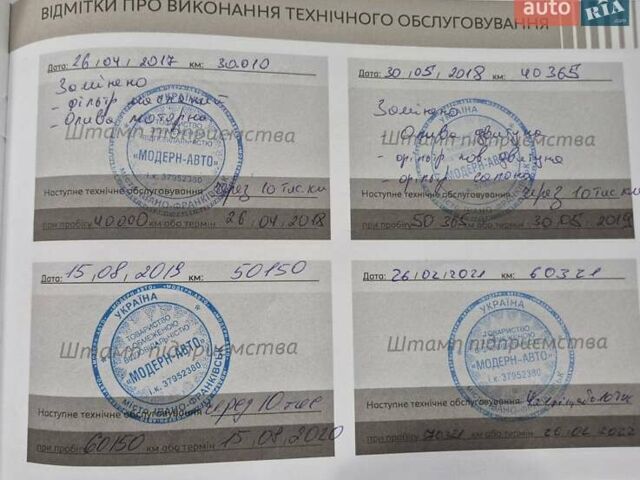 ВІДМІТКИ ПРО ВИКОНАННЯ ТЕХНІЧНОГО ОБСЛУГОВУВАННЯ
auto RIA
.com
Дата: 26,04,2017 км: 30010
Замінено
- фільтр масляний
- Олива моторна
Штамп підприємства
УКРАЇНА
«МОДЕРН-АВТО»
і.к. 37952380
ІВАНО-ФРАНКІВСЬК
Наступне технічне обслуговування через 10 тис. км
при пробігу 40000 км або термін 26,04,2018
Дата: 30,05,2018 км: 40365
Замінено
- Олива двигуна
- фільтр пов. двигуна
- фільтр салона
Штамп підприємства
УКРАЇНА
«МОДЕРН-АВТО»
і.к. 37952380
Наступне технічне обслуговування через 10 тис. км
при пробігу 50365 км або термін 30.05,2019
Дата: 15,08,2019 км: 50150
Штамп підприємства
УКРАЇНА
ТОВАРИСТВО
З ОБМЕЖЕНОЮ
ВІДПОВІДАЛЬНІСТЮ
«МОДЕРН-АВТО»
і.к. 37952380
МІСТО ІВАНО-ФРАНКІВСЬК
Наступне технічне обслуговування через 10 тис
при пробігу 60150 км або термін 15,08,2020
Дата: 26,02,2021 км: 60321
Штамп підприємства
УКРАЇНА
ТОВАРИСТВО
З ОБМЕЖЕНОЮ
ВІДПОВІДАЛЬНІСТЮ
«МОДЕРН-АВТО»
і.к. 37952380
Наступне технічне обслуговування
при пробігу 70321 км або термін 26,02,2022